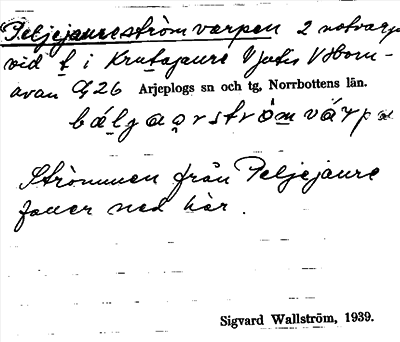 Peljejaureströmvarpen 2 notvarp
vid t i Krutajaure V Hornavan
avan G 26 Arjeplogs sn och tg, Norrbottens län.
bálgaɑrström várpₐ
Strömmen från Peljejaure
faller ned här.
Sigvard Wallström, 1939.